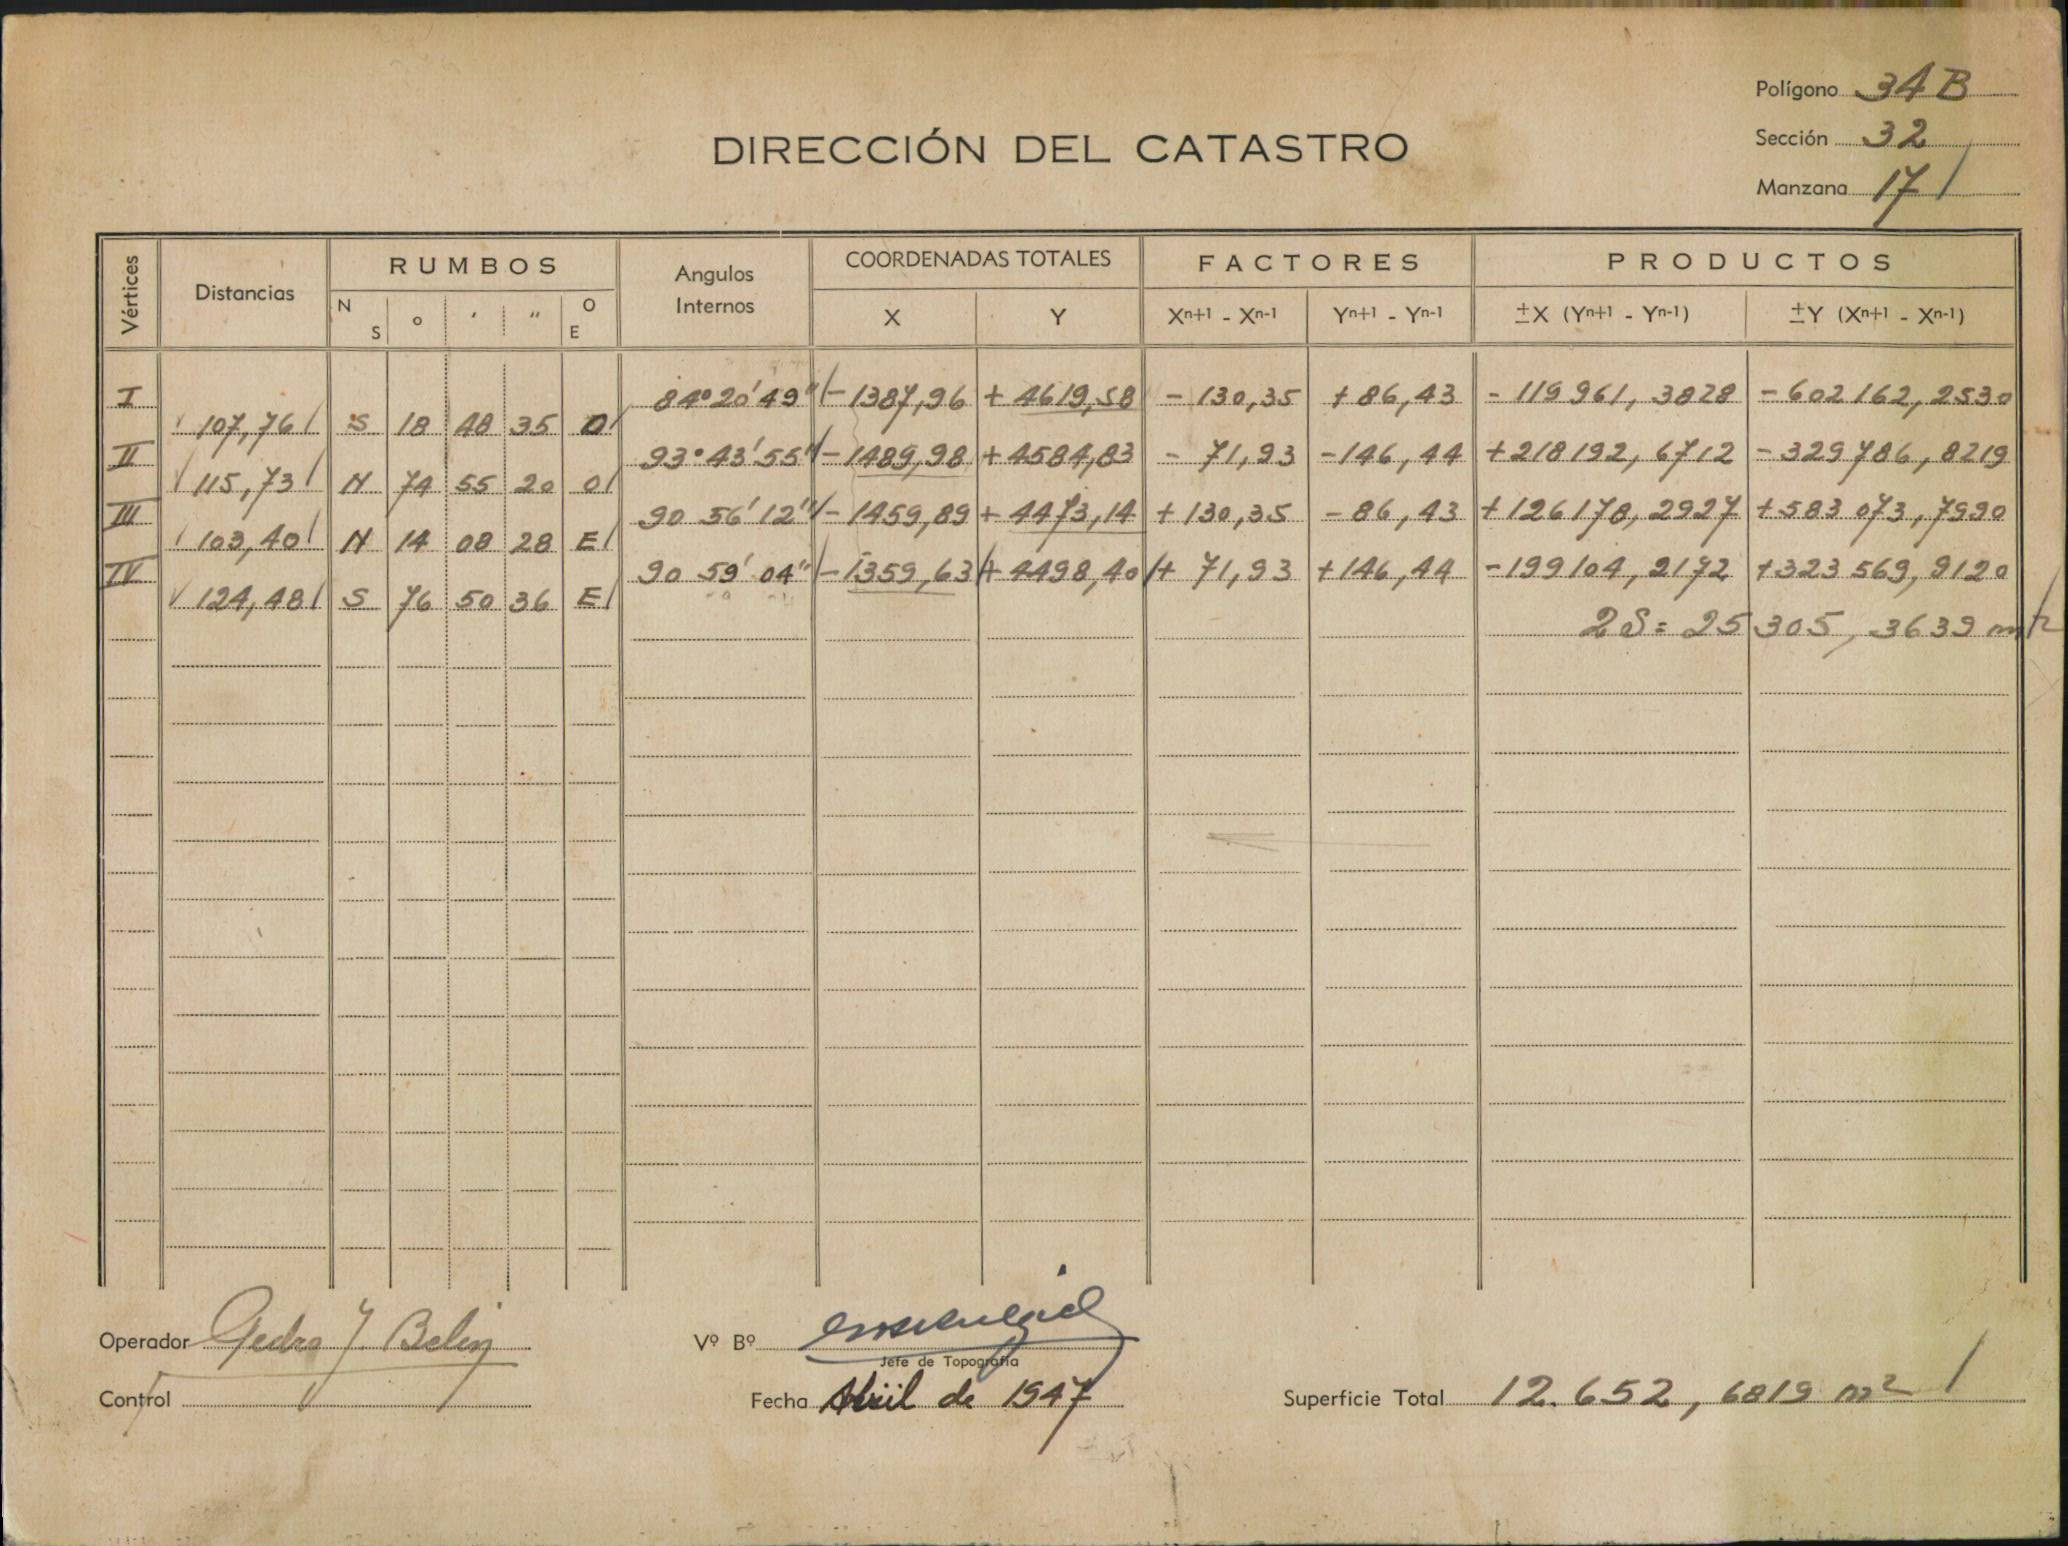 Polígono 34 B
Sección 32
Manzana 17 /
DIRECCIÓN DEL CATASTRO
Vértices Distancias RUMBOS Angulos Internos COORDENADAS TOTALES FACTORES PRODUCTOS
N S ° ' " O E X Y Xn+1 - Xn-1 Yn+1 - Yn-1 ±X (Yn+1 - Yn-1) ±Y (Xn+1 - Xn-1)
I 84°20'49" -1387,96 +4619,58 -130,35 +86,43 -119961,3828 -602162,2530
107,76 S 18 48 35 O
II 93°43'55" -1489,98 +4584,83 -71,93 -146,44 +218192,6712 -329786,8219
115,73 N 74 55 20 O
III 90 56'12" -1459,89 +4473,14 +130,35 -86,43 +126178,2927 +583073,7990
103,40 N 14 08 28 E
IV 90 59'04" -1359,63 +4498,40 +71,93 +146,44 -199104,2172 +323569,9120
124,48 S 76 50 36 E
2S= 25305,3639 m2
Operador Pedro J. Belin Vº Bº
Jefe de Topografía
Control Fecha Abril de 1947 Superficie Total 12.652,6819 m2 /